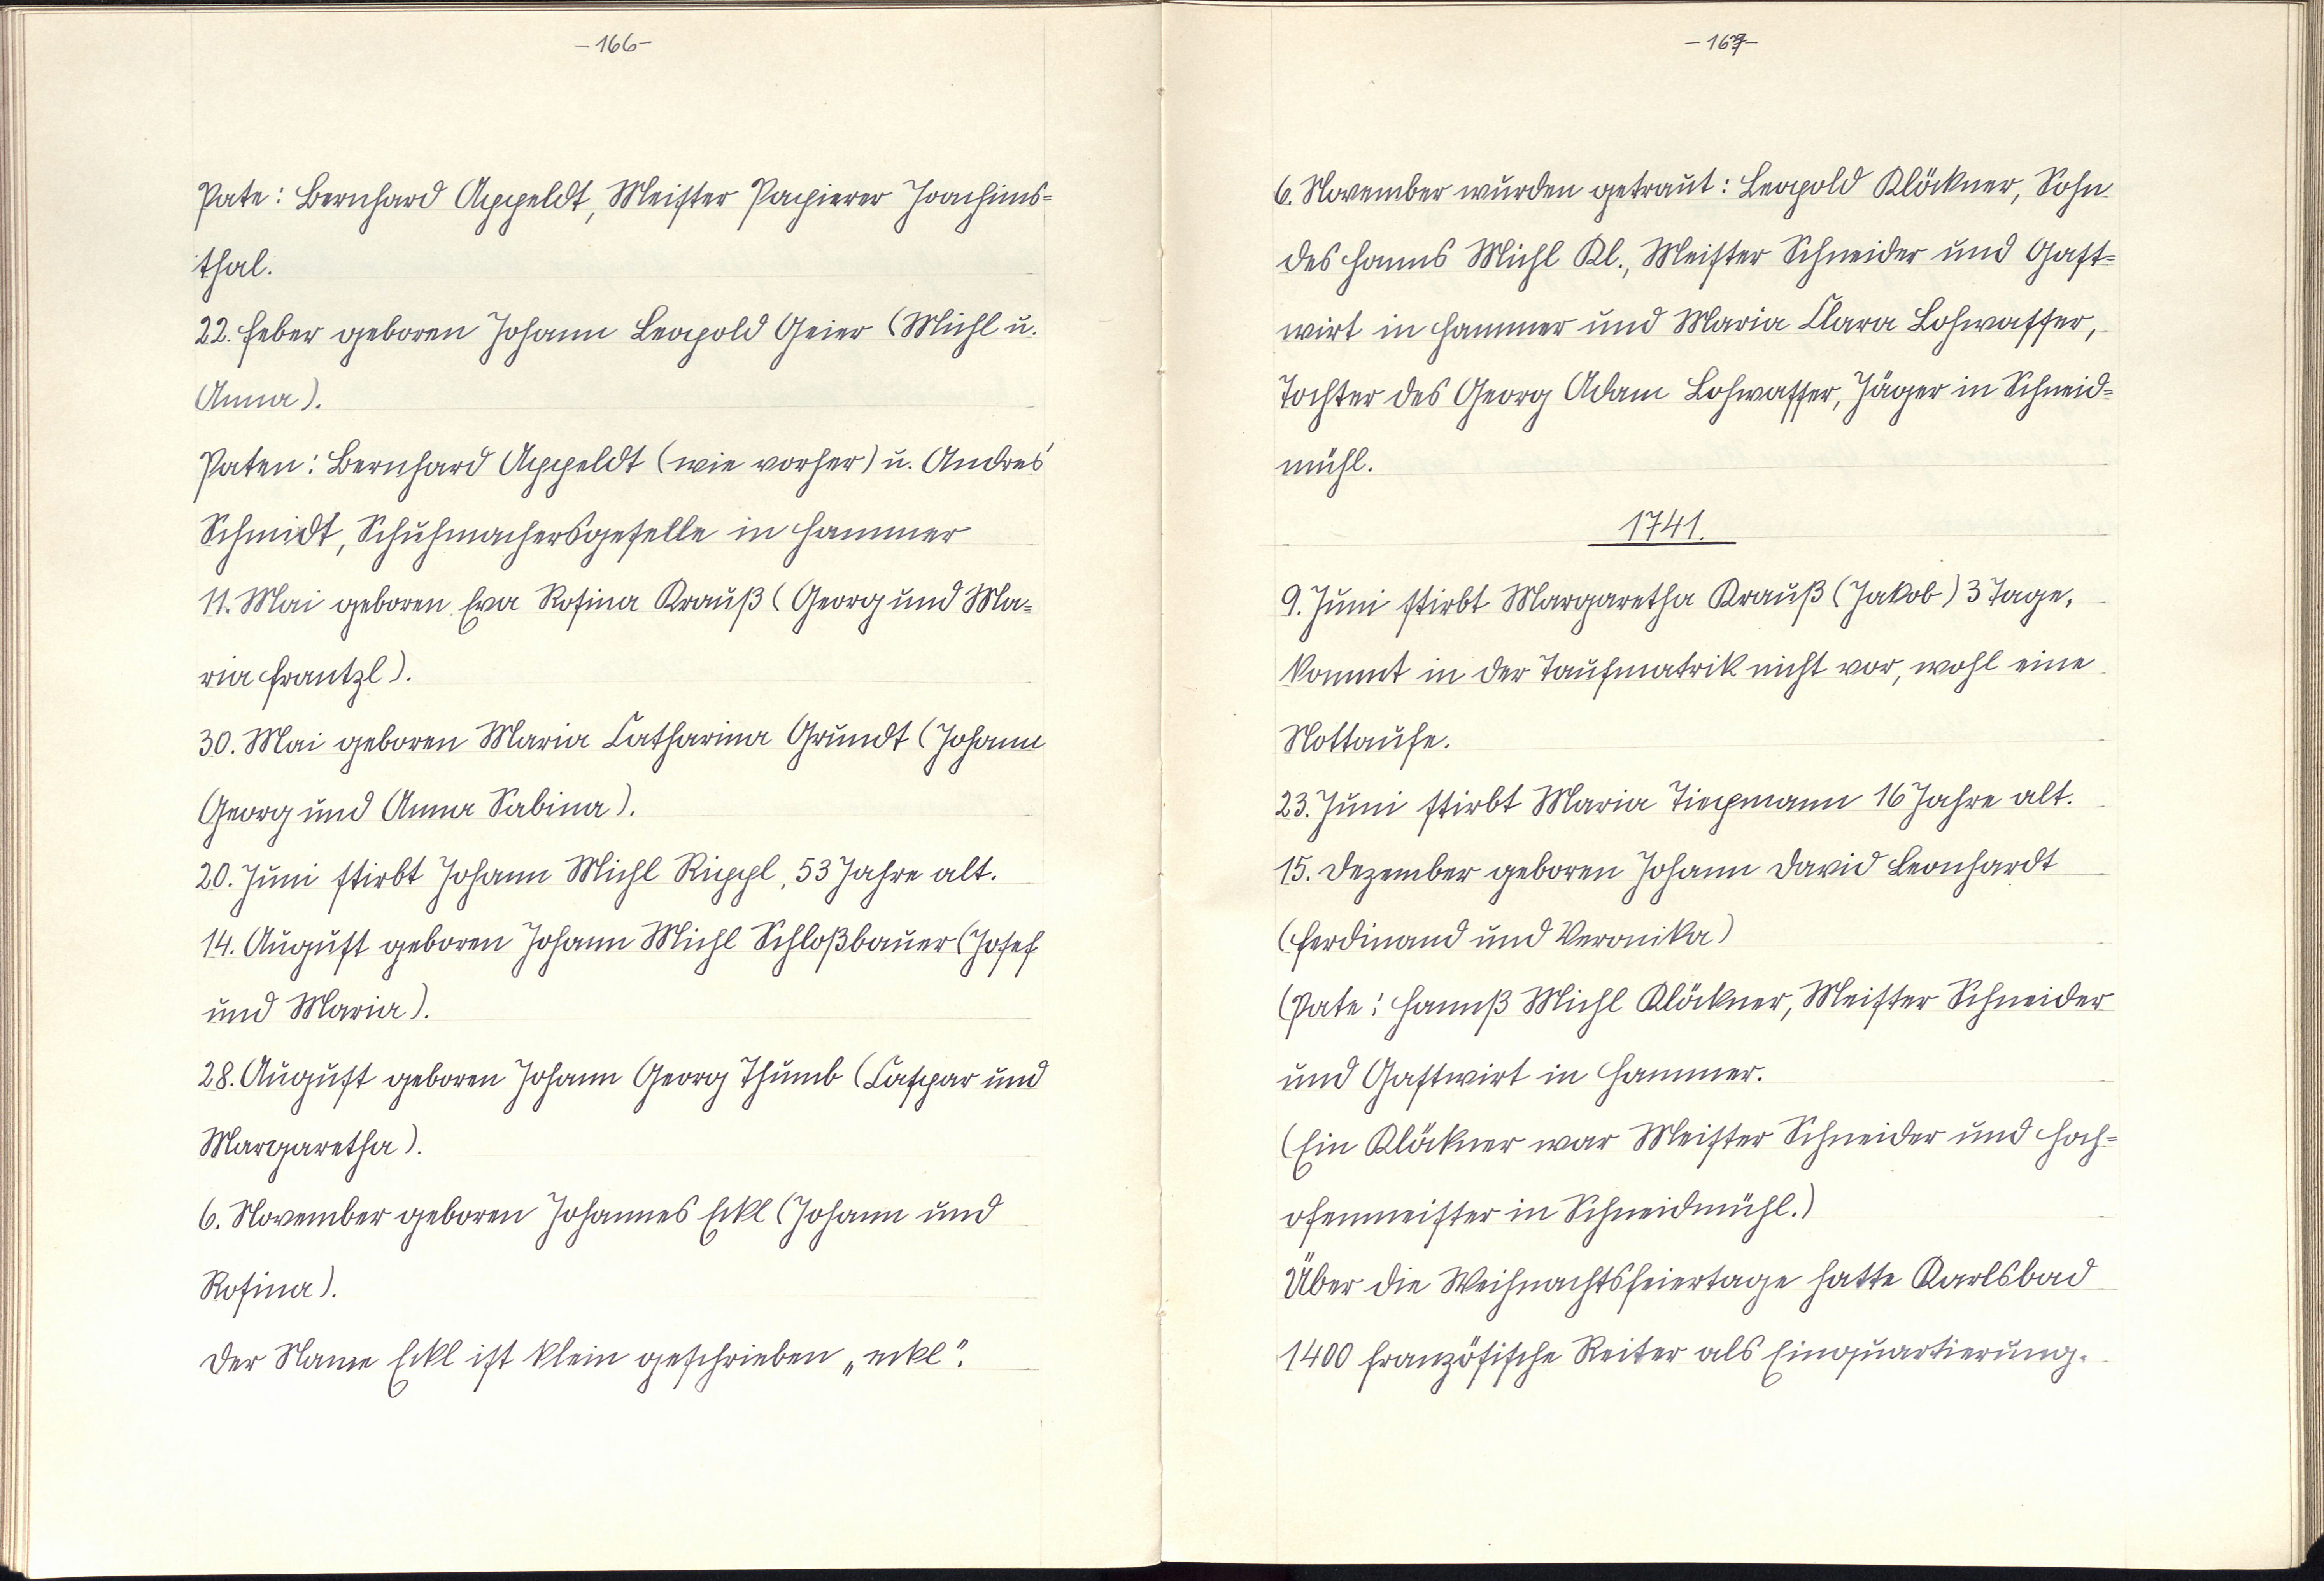 -166-
Pate: Bernhard Appeldt, Meister Papierer Joachims=
thal.
22. Feber geboren Johann Leopold Geier (Michl u.
Anna).
Paten: Bernhard Appeldt (wie vorher) u. Andres
Schmidt, Schuhmachersgeselle in Hammer
11. Mai geboren Eva Rosina Krauß (Georg und Ma=
ria Frantzl).
30. Mai geboren Maria Catharina Grundt (Johann
Georg und Anna Sabina).
20. Juni stirbt Johann Michl Rippl, 53 Jahre alt.
14. August geboren Johann Michl Schloßbauer (Josef
und Maria).
28. August geboren Johann Georg Thumb (Caspar und
Margaretha).
6. November geboren Johannes Eckl (Johann und
Rosina).
Der Name Eckl ist klein geschrieben „eckl“.
-167-
6. November wurden getraut: Leopold Klöckner, Sohn
des Hanns Michl Kl., Meister Schneider und Gast=
wirt in Hammer und Maria Clara Lohwasser,
Tochter des Georg Adam Lohwasser, Jäger in Schneid=
mühl.
1741.
9. Juni stirbt Margaretha Krauß (Jakob) 3 Tage,
kommt in der Taufmatrik nicht vor, wohl eine
Nottaufe.
23. Juni stirbt Maria Tiepmann 16 Jahre alt.
15. Dezember geboren Johann David Leonhardt
(Ferdinand und Veronika)
(Pate: Hannß Michl Klöckner, Meister Schneider
und Gastwirt in Hammer.
(Ein Klöckner war Meister Schneider und Hoch=
ofenmeister in Schneidmühl.)
Über die Weihnachtsfeiertage hatte Karlsbad
1400 französische Reiter als Einquartierung.